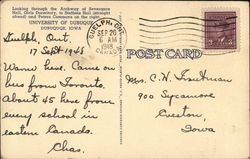 Looking through the Archway of Severance
Hall, Girls Dormitory, to Steffens Hall (straight
ahead) and Peters Commons on the right
UNIVERSITY OF DUBUQUE
DUBUQUE, IOWA
GUELPH, ONT.
SEP 20
6 AM
1948
CANADA
POST CARD
Guelph, Ont.
17 Sept 1948
Warm here. Came on
bus from Toronto.
About 45 here from
every school in
eastern Canada.
Chas.
Mrs. C. H.
900 Sycamore
Iowa